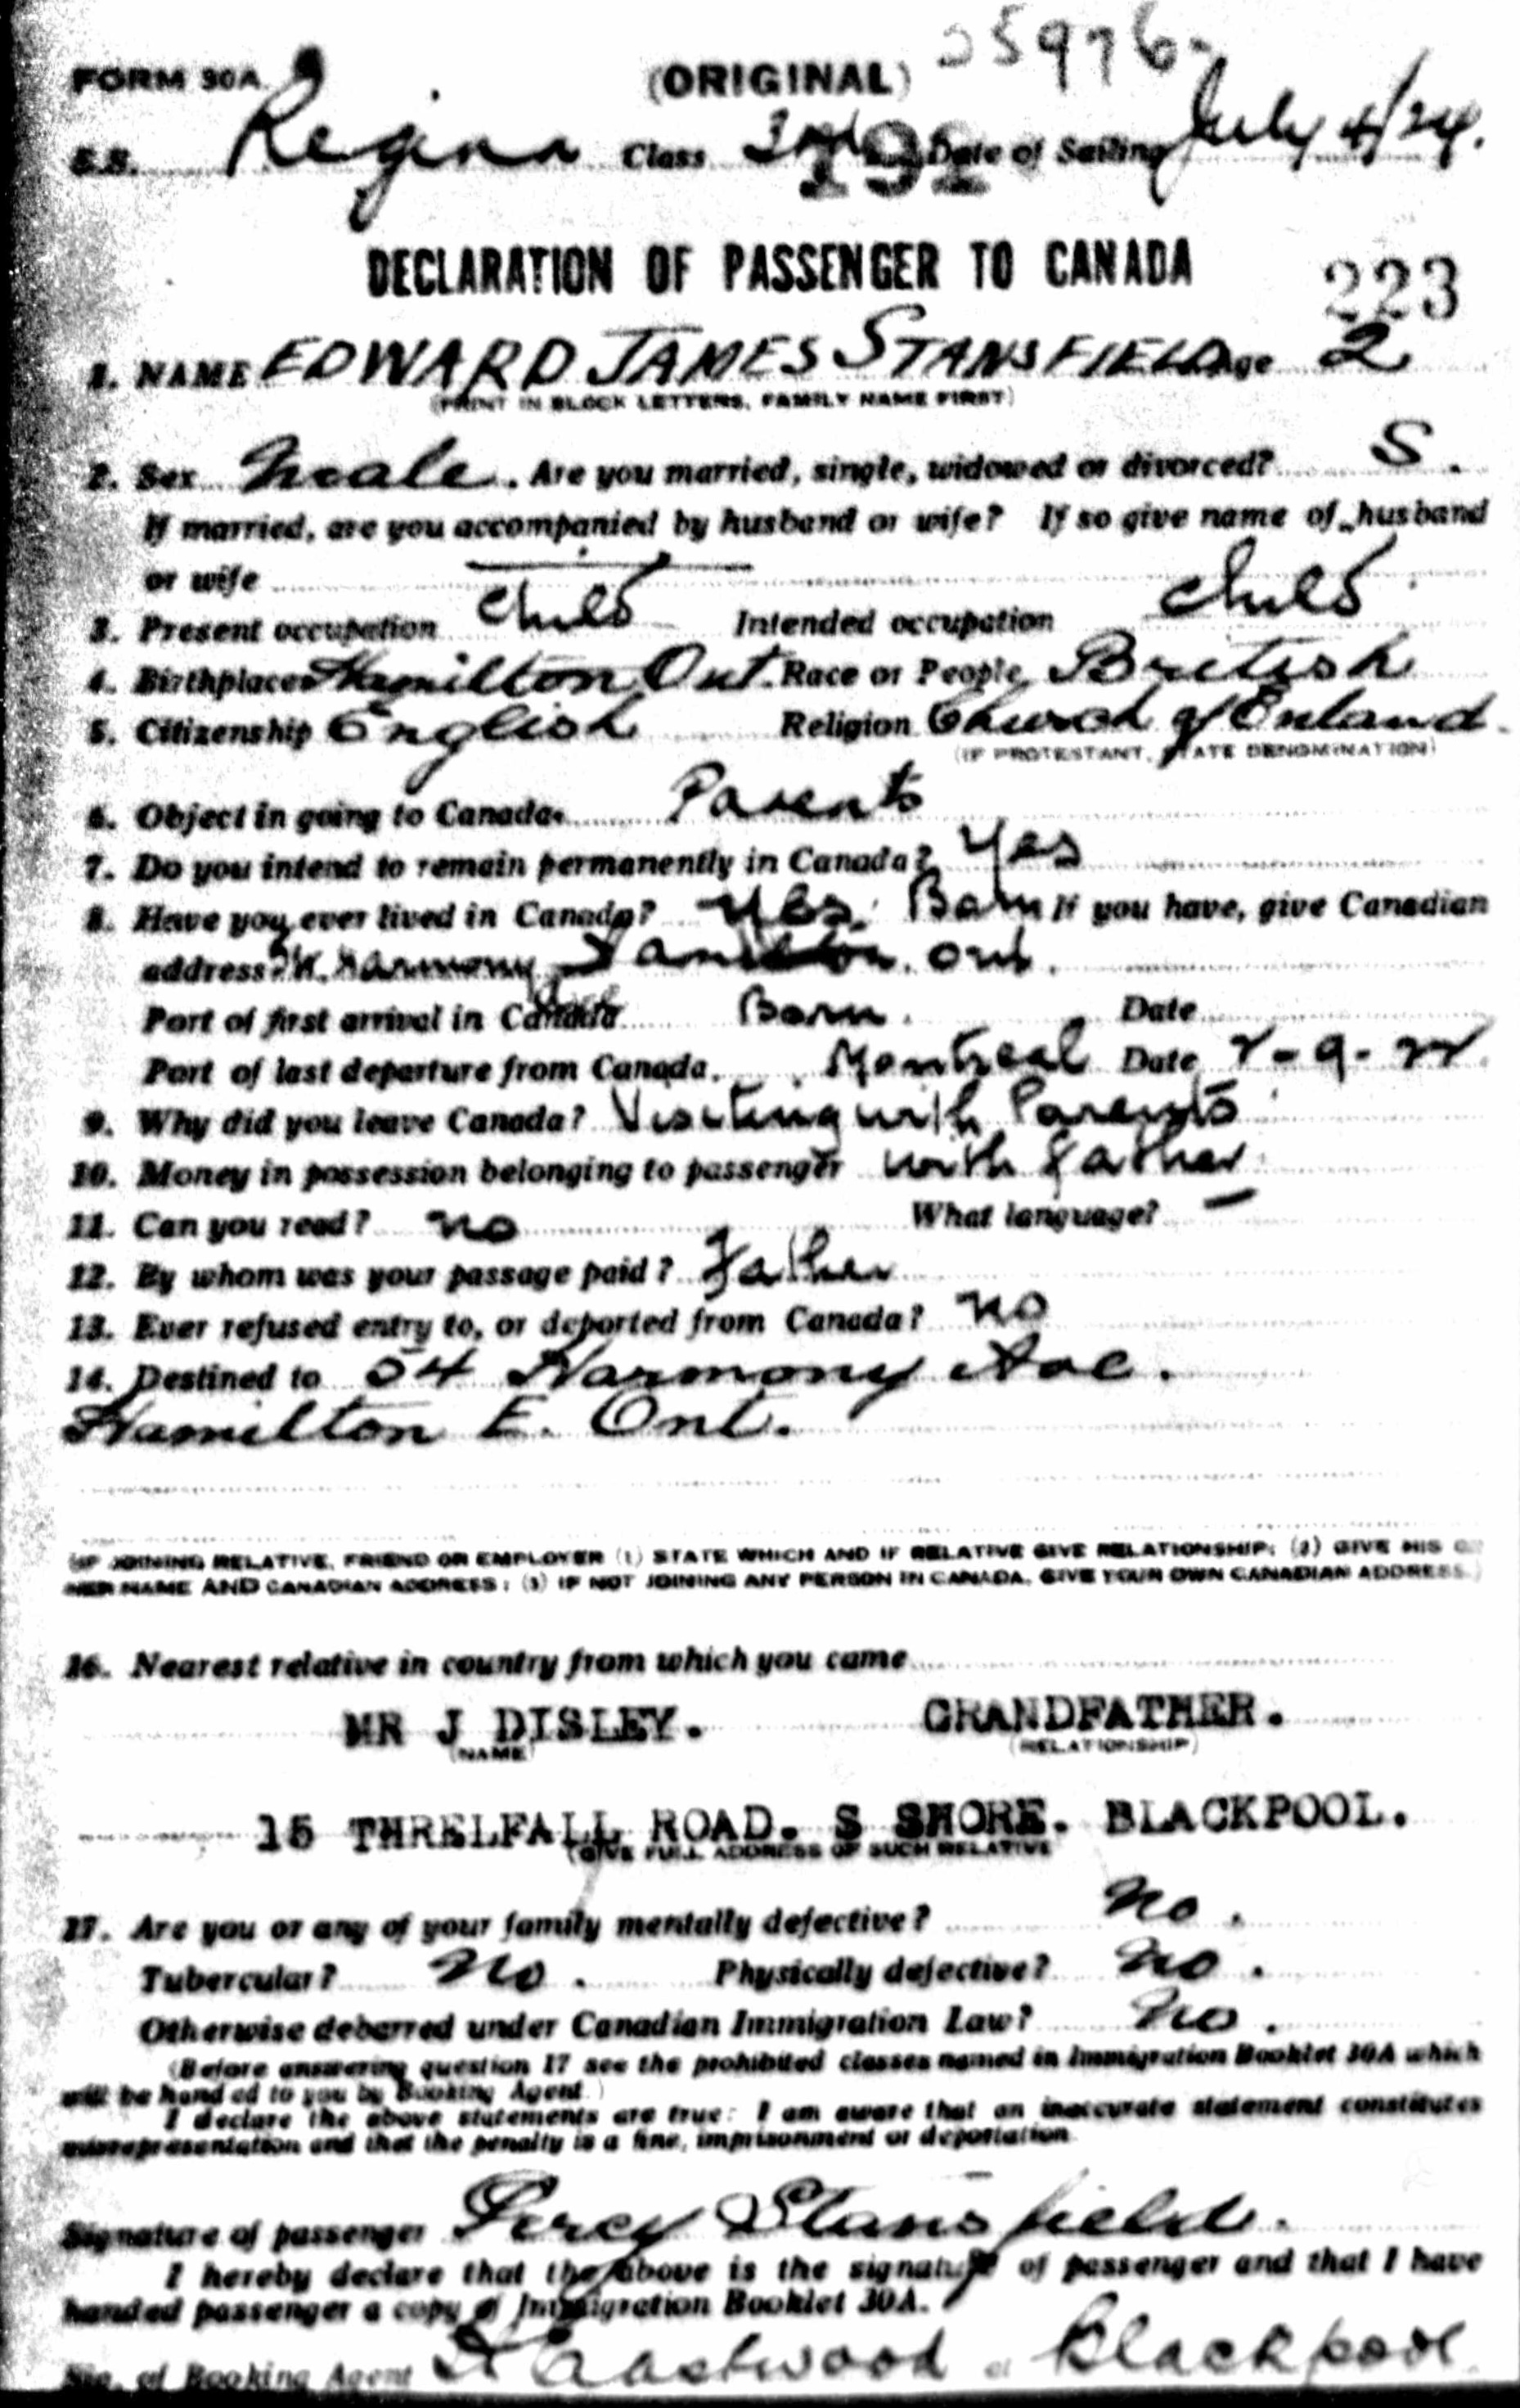 25976-
FORM 30A (ORIGINAL)
S.S. Regina Class 3rd Date of Sailing July 4/24.
191
DECLARATION OF PASSENGER TO CANADA
223
1. NAME EDWARD JAMES STANSFIELD Age 2
(PRINT IN BLOCK LETTERS, FAMILY NAME FIRST)
2. Sex Male. Are you married, single, widowed or divorced? S.
If married, are you accompanied by husband or wife? If so give name of husband
or wife
3. Present occupation Child Intended occupation Child
4. Birthplace Hamilton Ont. Race or People British
5. Citizenship English Religion Church of Enland
(IF PROTESTANT, STATE DENOMINATION)
6. Object in going to Canada Parents
7. Do you intend to remain permanently in Canada? Yes
8. Have you ever lived in Canada? Yes. Born If you have, give Canadian
address Harmony Hamilton. Ont.
Port of first arrival in Canada Born. Date
Port of last departure from Canada. Montreal Date 2-9-22
9. Why did you leave Canada? Visiting with Parents
10. Money in possession belonging to passenger with father
11. Can you read? no What language? —
12. By whom was your passage paid? Father
13. Ever refused entry to, or deported from Canada? No
14. Destined to 54 Harmony Ave.
Hamilton E. Ont.
(IF JOINING RELATIVE, FRIEND OR EMPLOYER (1) STATE WHICH AND IF RELATIVE GIVE RELATIONSHIP; (2) GIVE HIS O
HER NAME AND CANADIAN ADDRESS; (3) IF NOT JOINING ANY PERSON IN CANADA, GIVE YOUR OWN CANADIAN ADDRESS.)
16. Nearest relative in country from which you came
MR J DISLEY. GRANDFATHER.
(NAME) (RELATIONSHIP)
15 THRELFALL ROAD. S SHORE. BLACKPOOL.
(GIVE FULL ADDRESS OF SUCH RELATIVE
17. Are you or any of your family mentally defective? No.
Tubercular? No. Physically defective? No.
Otherwise debarred under Canadian Immigration Law? No.
(Before answering question 17 see the prohibited classes named in Immigration Booklet 30A which
will be handed to you by Booking Agent)
I declare the above statements are true: I am aware that an inaccurate statement constitutes
misrepresentation and that the penalty is a fine, imprisonment or deportation
Signature of passenger Percy Stansfield.
I hereby declare that the above is the signature of passenger and that I have
handed passenger a copy of Immigration Booklet 30A.
Sig. of Booking Agent Eastwood Blackpool